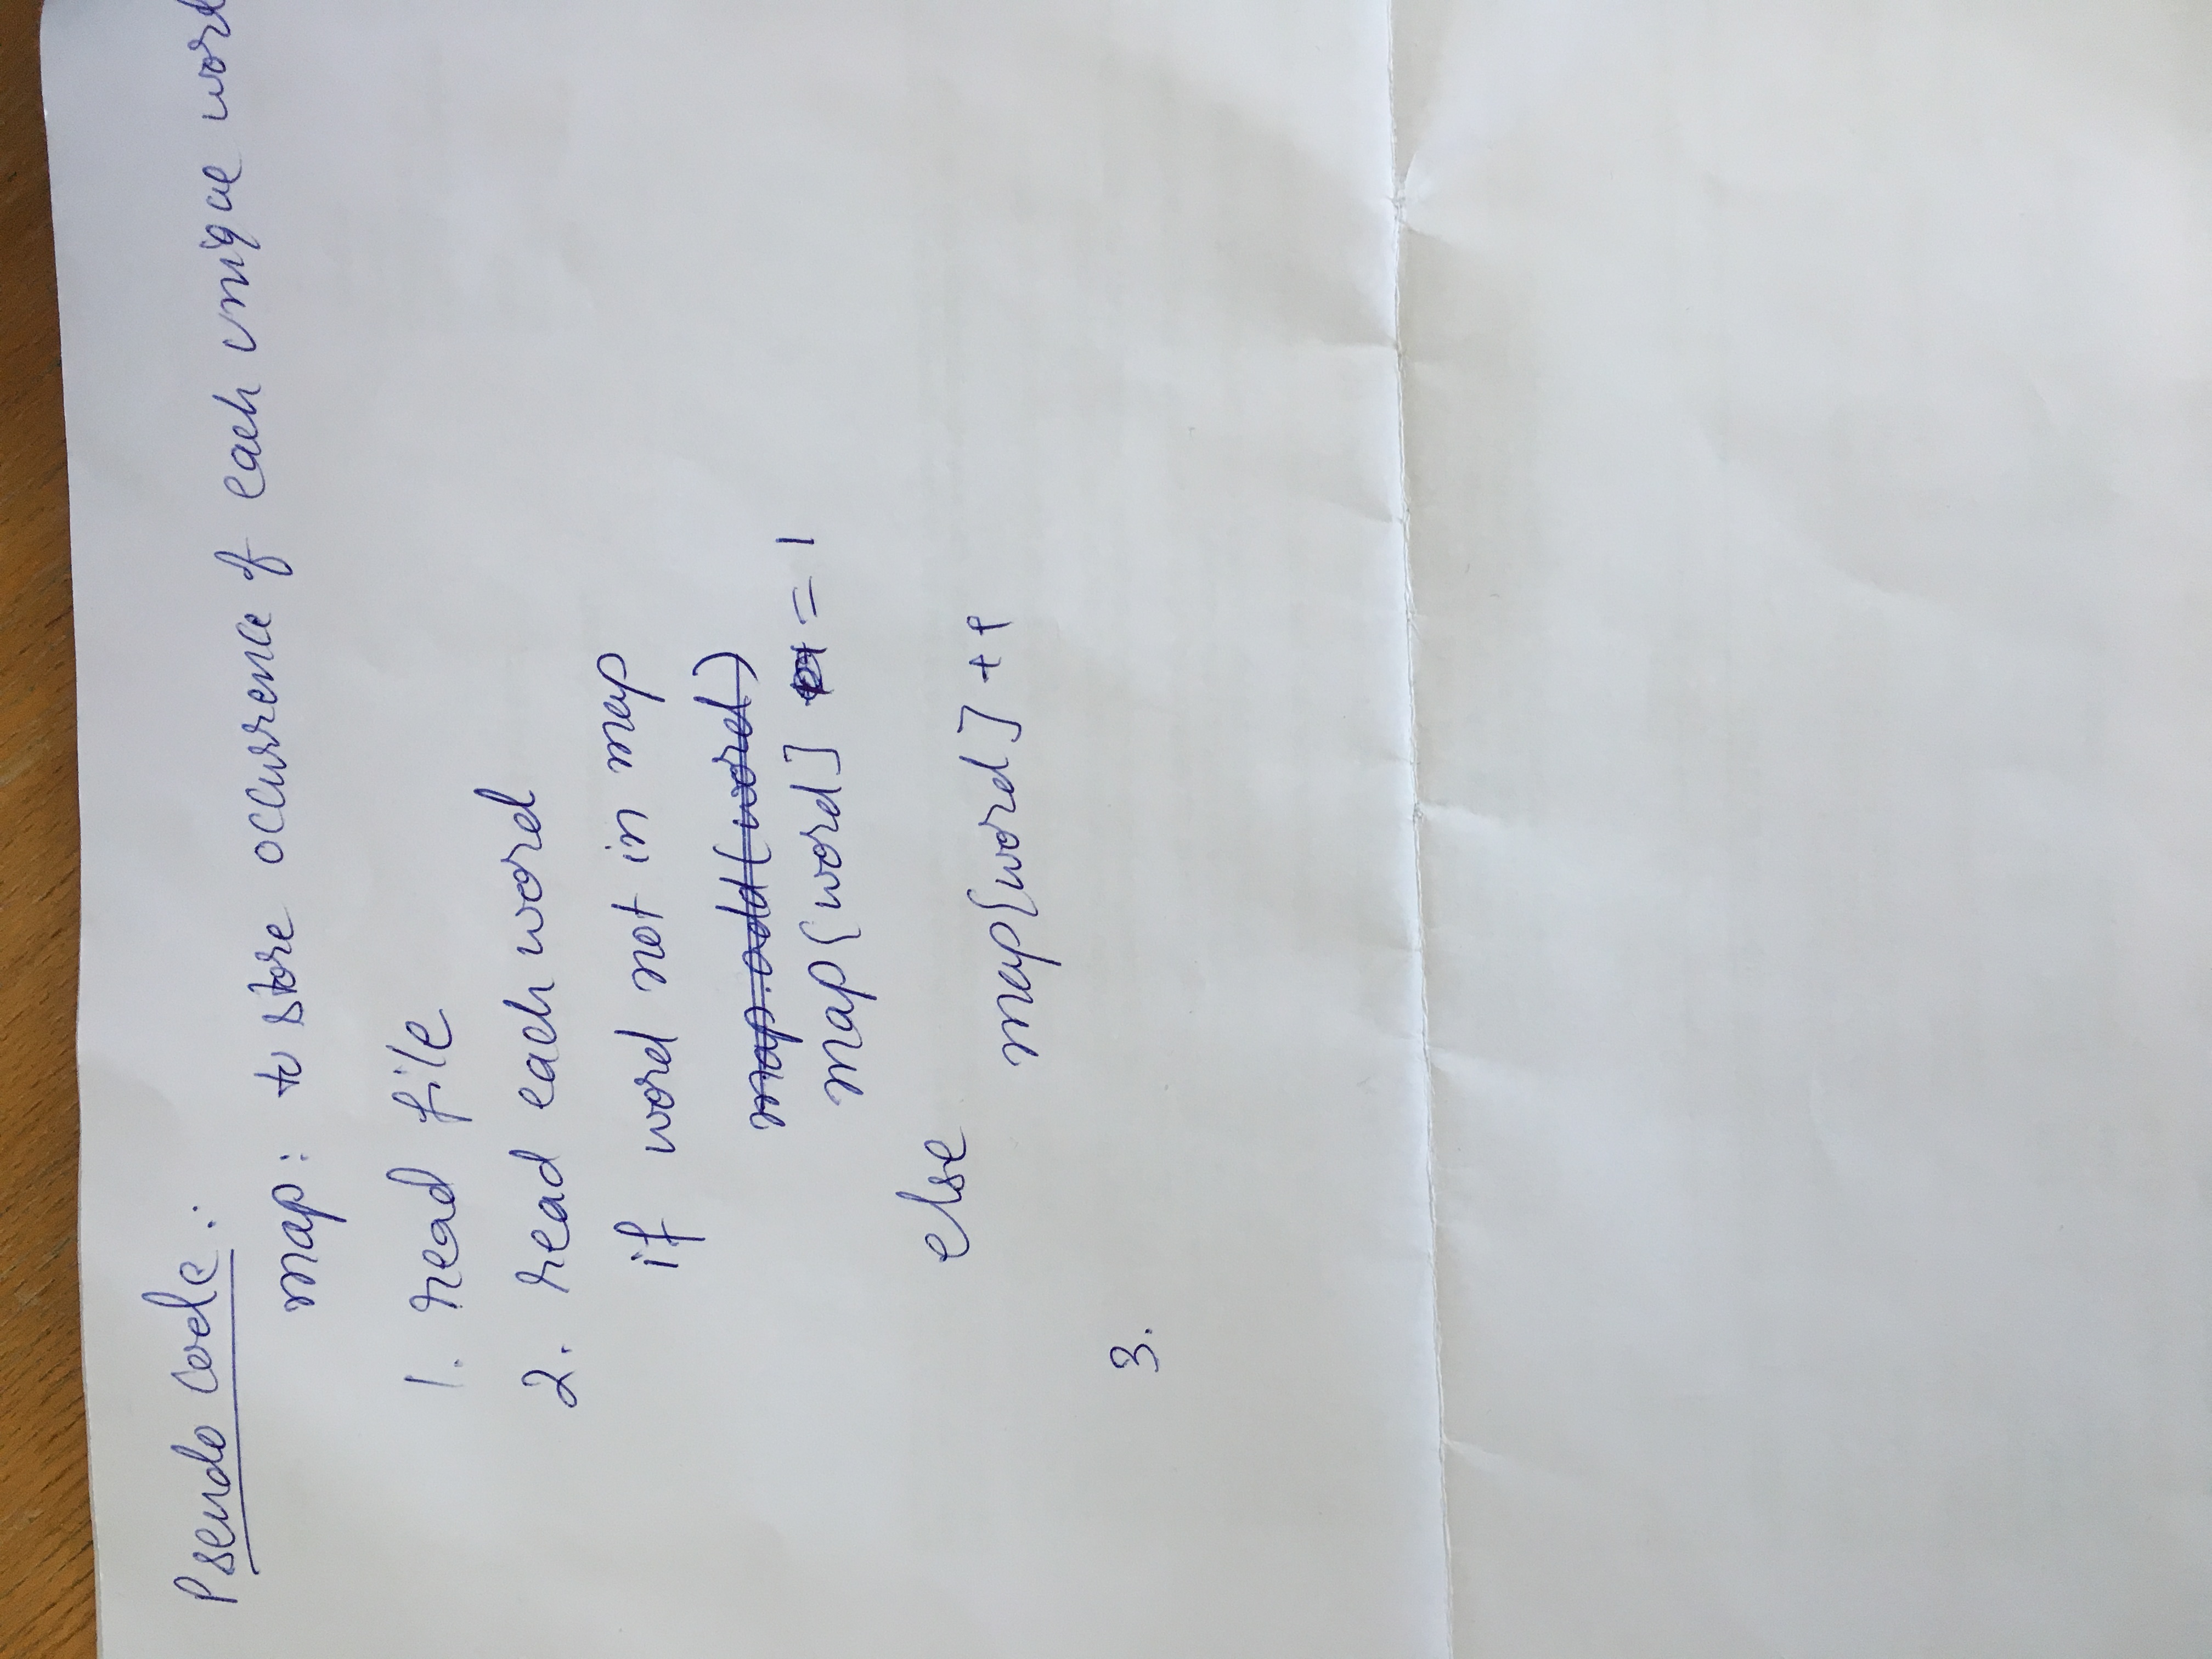 Pseudo Code:
map: to store occurrence of each unique word
1. read file
2. read each word
if word not in map
map.add(word)
map[word] = 1
else
map[word]++
3.